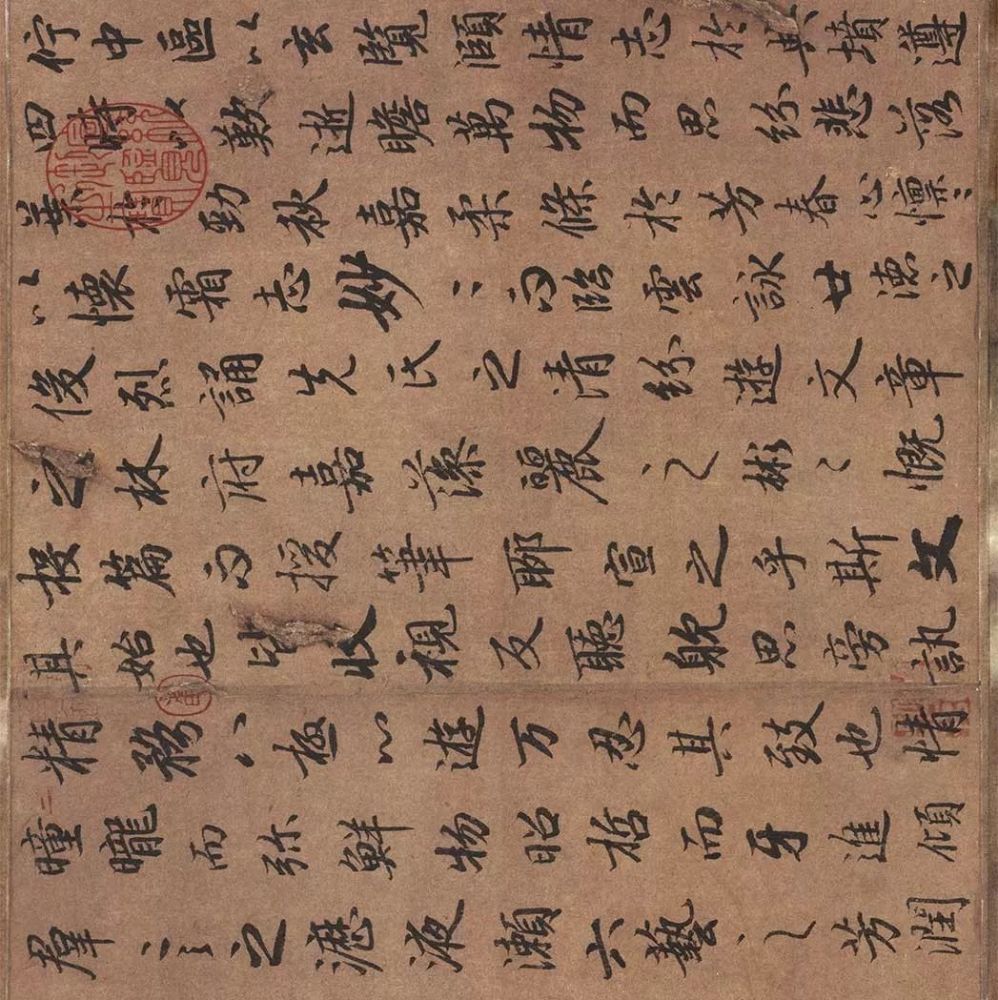 佇中區以玄覽頤情志於典墳遵
四時以歎逝瞻萬物而思紛悲落
葉於勁秋嘉柔條於芳春心懍〻
以懷霜志妙〻而臨雲詠世德之
俊烈誦先氏之清紛遊文章
之林府嘉藻麗之彬〻慨
投篇而援筆聊宣之乎斯文
其始也皆收視反聽躭思旁訊
精騖八極心遊万忍其致也情
曈曨而弥鮮物昭晢而牙進傾
羣言之瀝液漱六藝之芳潤